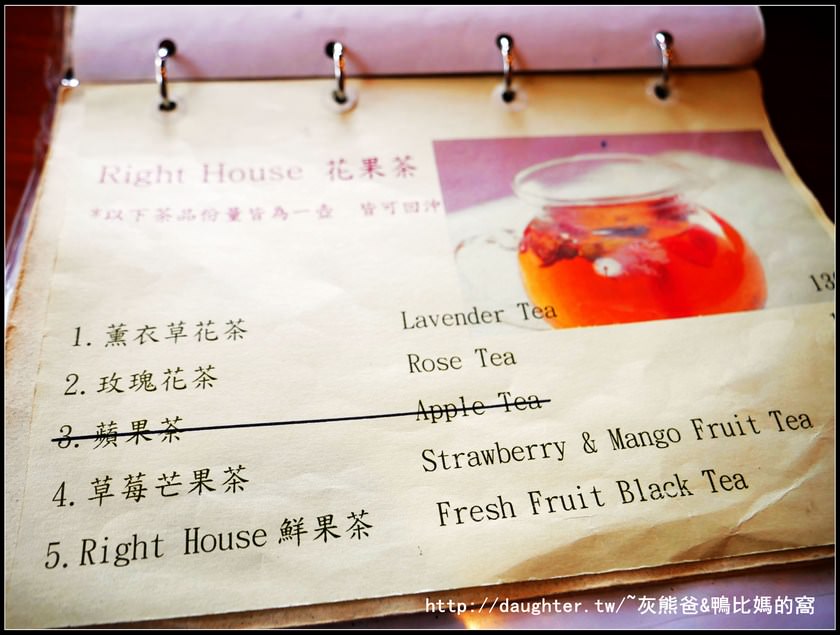 Right House 花果茶
*以下茶品份量皆為一壺 皆可回沖
1. 薰衣草花茶 Lavender Tea
2. 玫瑰花茶 Rose Tea
3. 蘋果茶 Apple Tea
4. 草莓芒果茶 Strawberry & Mango Fruit Tea
5. Right House 鮮果茶 Fresh Fruit Black Tea
http://daughter.tw/~灰熊爸&鴨比媽的窩